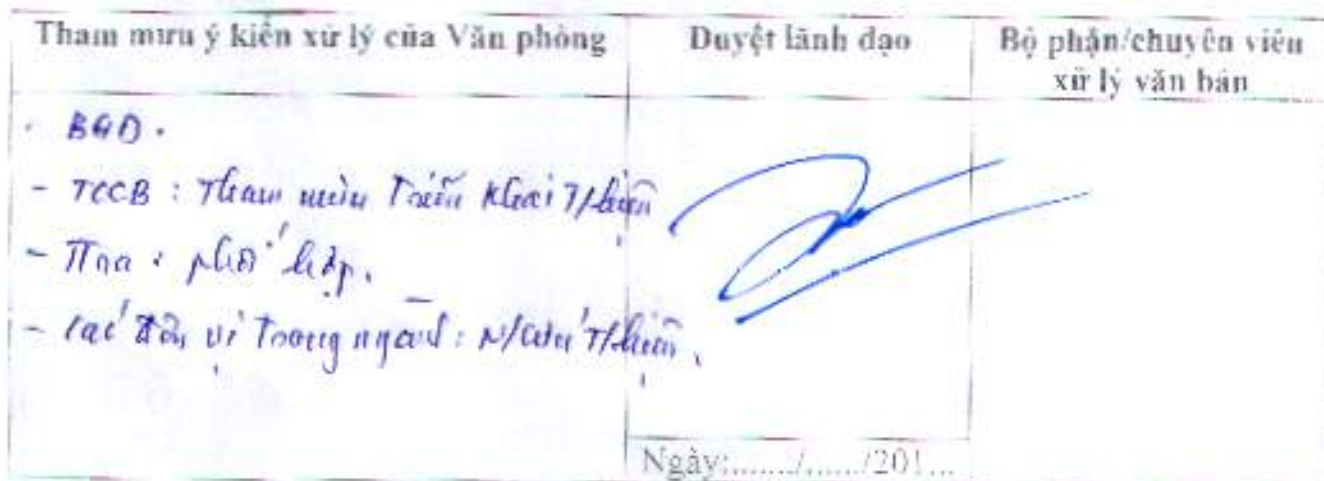 Tham mưu ý kiến xử lý của Văn phòng
Duyệt lãnh đạo
Bộ phận/chuyên viên
xử lý văn bản
- BGĐ.
- TCCB : Tham mưu Triển khai T/hiện
- TTra : phối hợp.
- Các đơn vị trong ngành : N/cứu T/hiện.
Ngày:......./......./201...